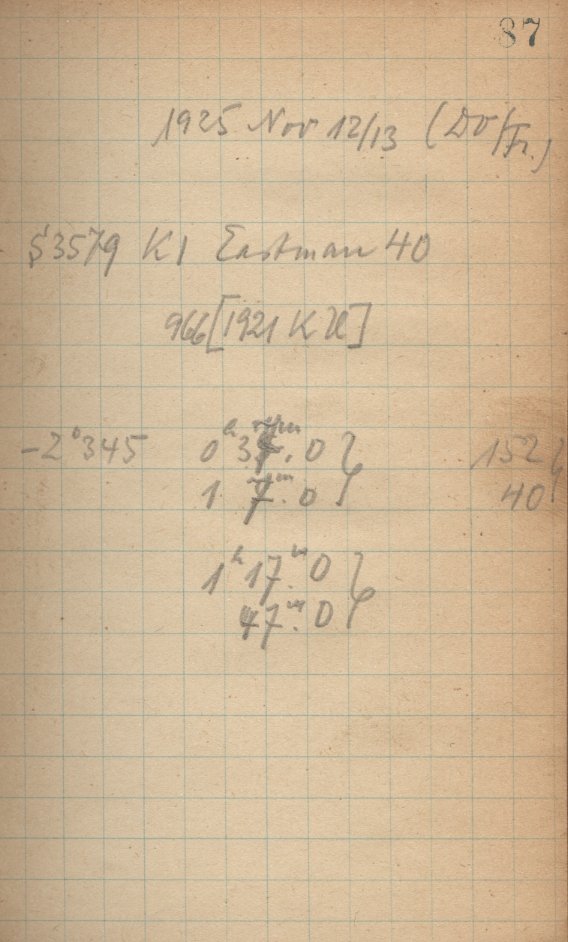 87
1925 Nov 12/13 (Do/Fr.)
§3579 K1 Eastman 40
966 [1921 KU]
-2°345 0h 37m.0 } 152 }
1 7m.0 40
1h 17m.0 }
47m.0